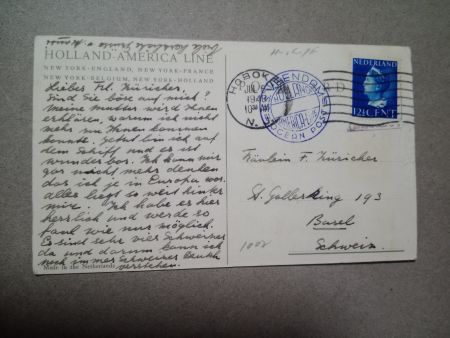 HOLLAND-AMERICA LINE
NEW YORK-ENGLAND, NEW YORK-FRANCE
NEW YORK-BELGIUM, NEW YORK-HOLLAND
Liebes Frl. Züricher.
Sind Sie böse auf mich?
Meine Mutter wird Ihnen
erklären, warum ich nicht
mehr zu Ihnen kommen
konnte. Jetzt bin ich auf
dem Schiff und es ist
wunderbar. Ich kann mir
gar nicht mehr denken
das ich je in Europa war.
alles liegt so weit hinter
mir. Ich habe es hier
herrlich und werde so
faul wie nur möglich.
Es sind sehr vier Schweizer
da und darum kann ich
noch immer Schweizer
verstehen.
Made in the Netherlands
HOBOK
1948
N.J.
OCEAN POST
NEDERLAND
12½ CENT
Fräulein F. Züricher
St. Gallerring 193
Basel
Schweiz.
1002